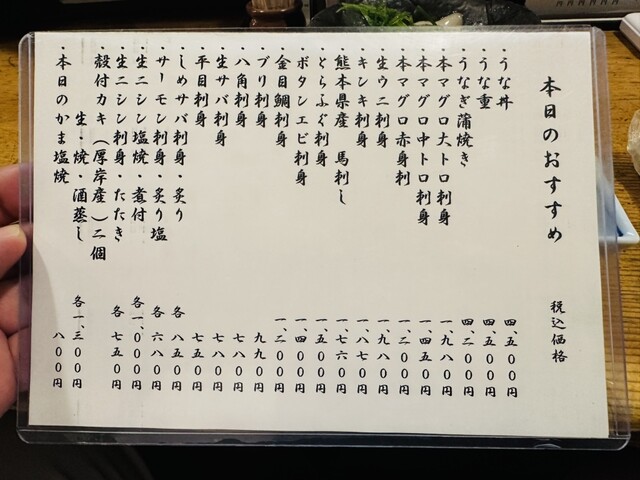 本日のおすすめ 税込価格
・うな丼 四、五００円
・うな重 四、五００円
・うなぎ蒲焼き 四、二００円
・本マグロ大トロ刺身 一、九八０円
・本マグロ中トロ刺身 一、四五０円
・本マグロ赤身刺 一、二００円
・生ウニ刺身 一、九八０円
・キンキ刺身 一、八七０円
・熊本県産 馬刺し 一、七六０円
・とらふぐ刺身 一、五００円
・ボタンエビ刺身 一、四００円
・金目鯛刺身 一、二００円
・ブリ刺身 九九０円
・八角刺身 七八０円
・生サバ刺身 七八０円
・平目刺身 七五０円
・しめサバ刺身・炙り 各 八五０円
・サーモン刺身・炙り塩 各 六八０円
・生ニシン塩焼・煮付 各一、０００円
・生ニシン刺身・たたき 各 七五０円
・殻付カキ（厚岸産）二個
生・焼・酒蒸し 各一、三００円
・本日のかま塩焼 八００円